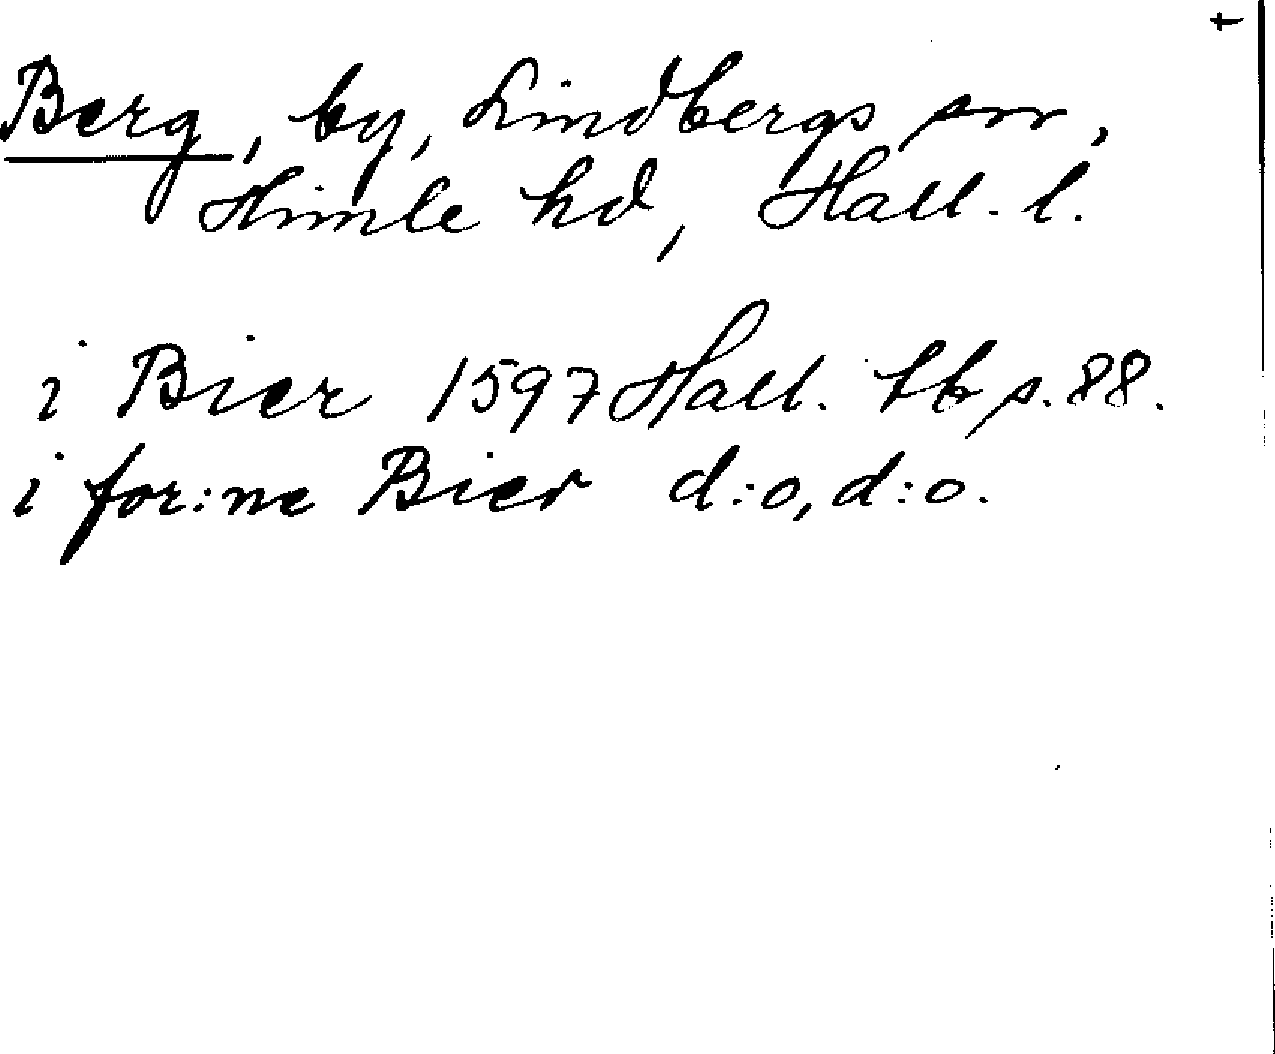 Berg, by, Lindbergs sn,
Himle hd, Hall. l.
i Bier 1597 Hall. tb s. 88.
i for:ne Bier d:o, d:o.